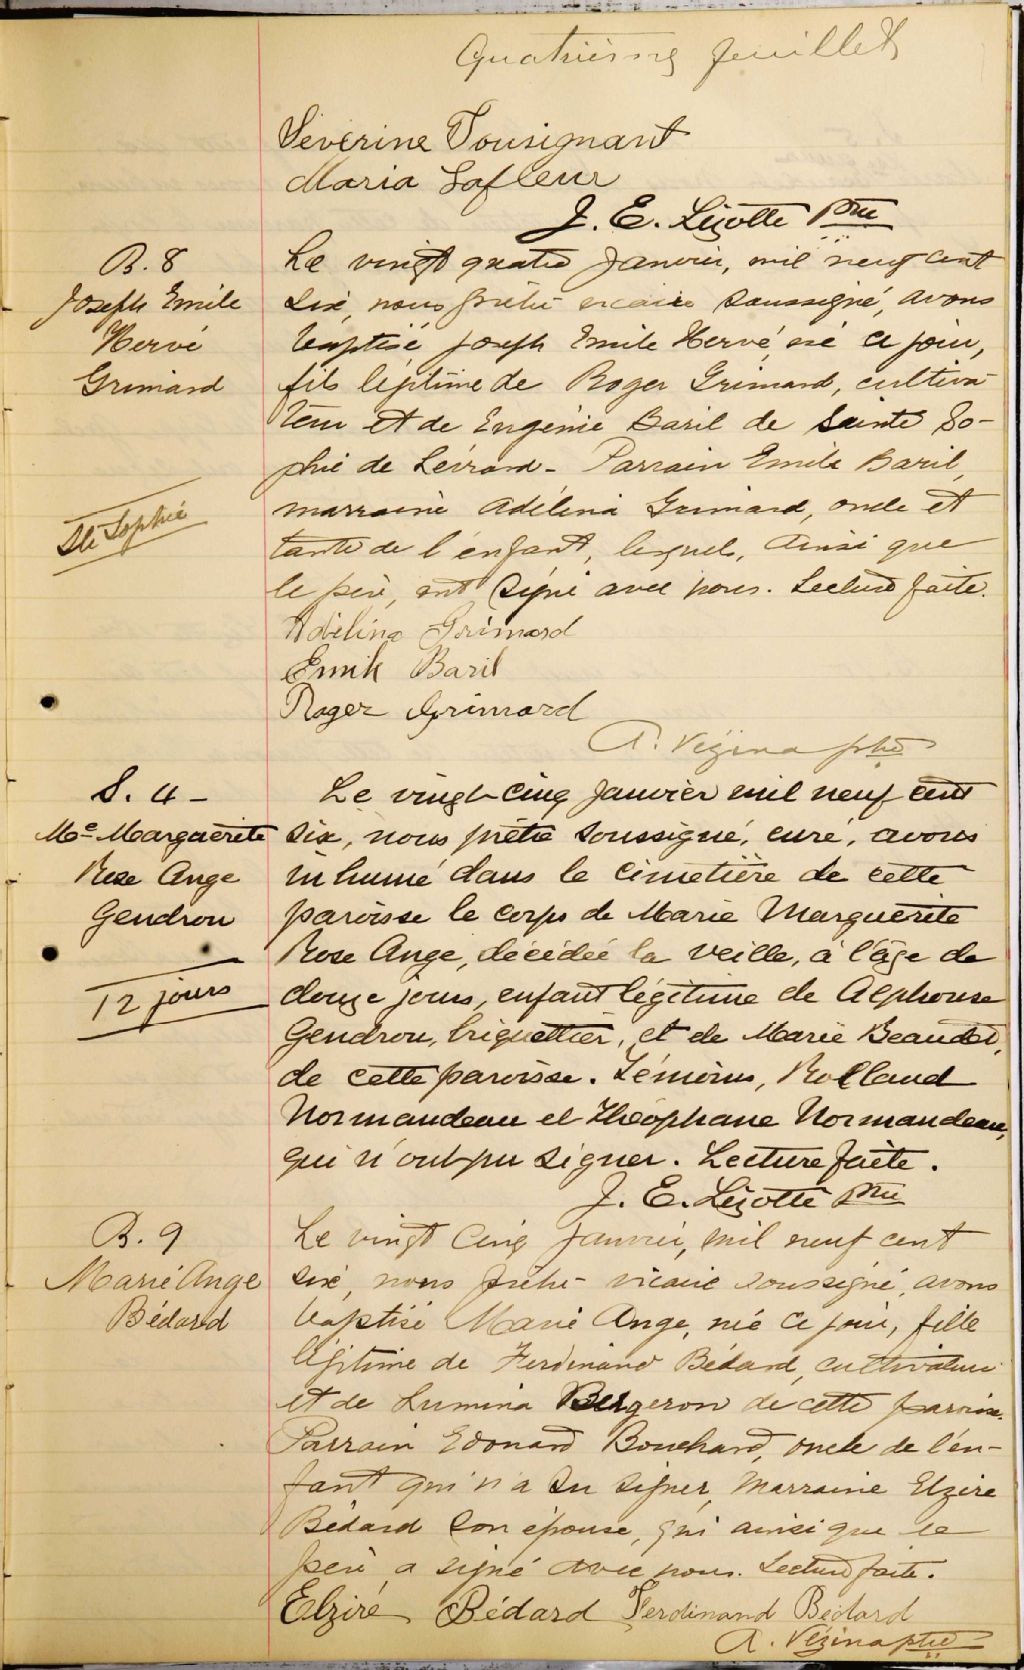 Quatrième feuillet
Sévérine Tousignant
Maria Lafleur
J. E. Lizotte Ptre
B. 8
Joseph Emile
Hervé
Grimard
Le vingt quatre Janvier, mil neuf cent
six, nous prêtre vicaire soussigné, avons
baptisé Joseph Emile Hervé, né ce jour,
fils légitime de Roger Grimard, cultiva-
teur et de Eugénie Baril de Sainte So-
phie de Lévrard - Parrain Emile Baril,
marraine Adélina Grimard, oncle et
tante de l'enfant, lesquels, ainsi que
le père, ont signé avec nous. Lecture faite.
Ste Sophie
Adélina Grimard
Emile Baril
Roger Grimard
A. Vézina ptre
S. 4 -
Me Marguerite
Rose Ange
Gendron
12 jours
Le vingt-cinq Janvier mil neuf cent
six, nous prêtre soussigné, curé, avons
inhumé dans le cimetière de cette
paroisse le corps de Marie Marguerite
Rose Ange, décédée la veille, à l'âge de
douze jours, enfant légitime de Alphonse
Gendron, briquettier, et de Marie Beaudet,
de cette paroisse. Témoins, Rolland
Normandeau et Théophane Normandeau,
qui n'ont pu signer. Lecture faite.
J. E. Lizotte Ptre
B. 9
Marie Ange
Bédard
Le vingt cinq Janvier, mil neuf cent
six, nous prêtre vicaire soussigné, avons
baptisé Marie Ange, née ce jour, fille
légitime de Ferdinand Bédard, cultivateur
et de Lumina Bergeron de cette paroisse.
Parrain Edouard Bouchard, oncle de l'en-
fant qui n'a su signer, marraine Elzire
Bédard son épouse, qui ainsi que le
père a signé avec nous. Lecture faite.
Elziré Bédard Ferdinand Bédard
A. Vézina ptre